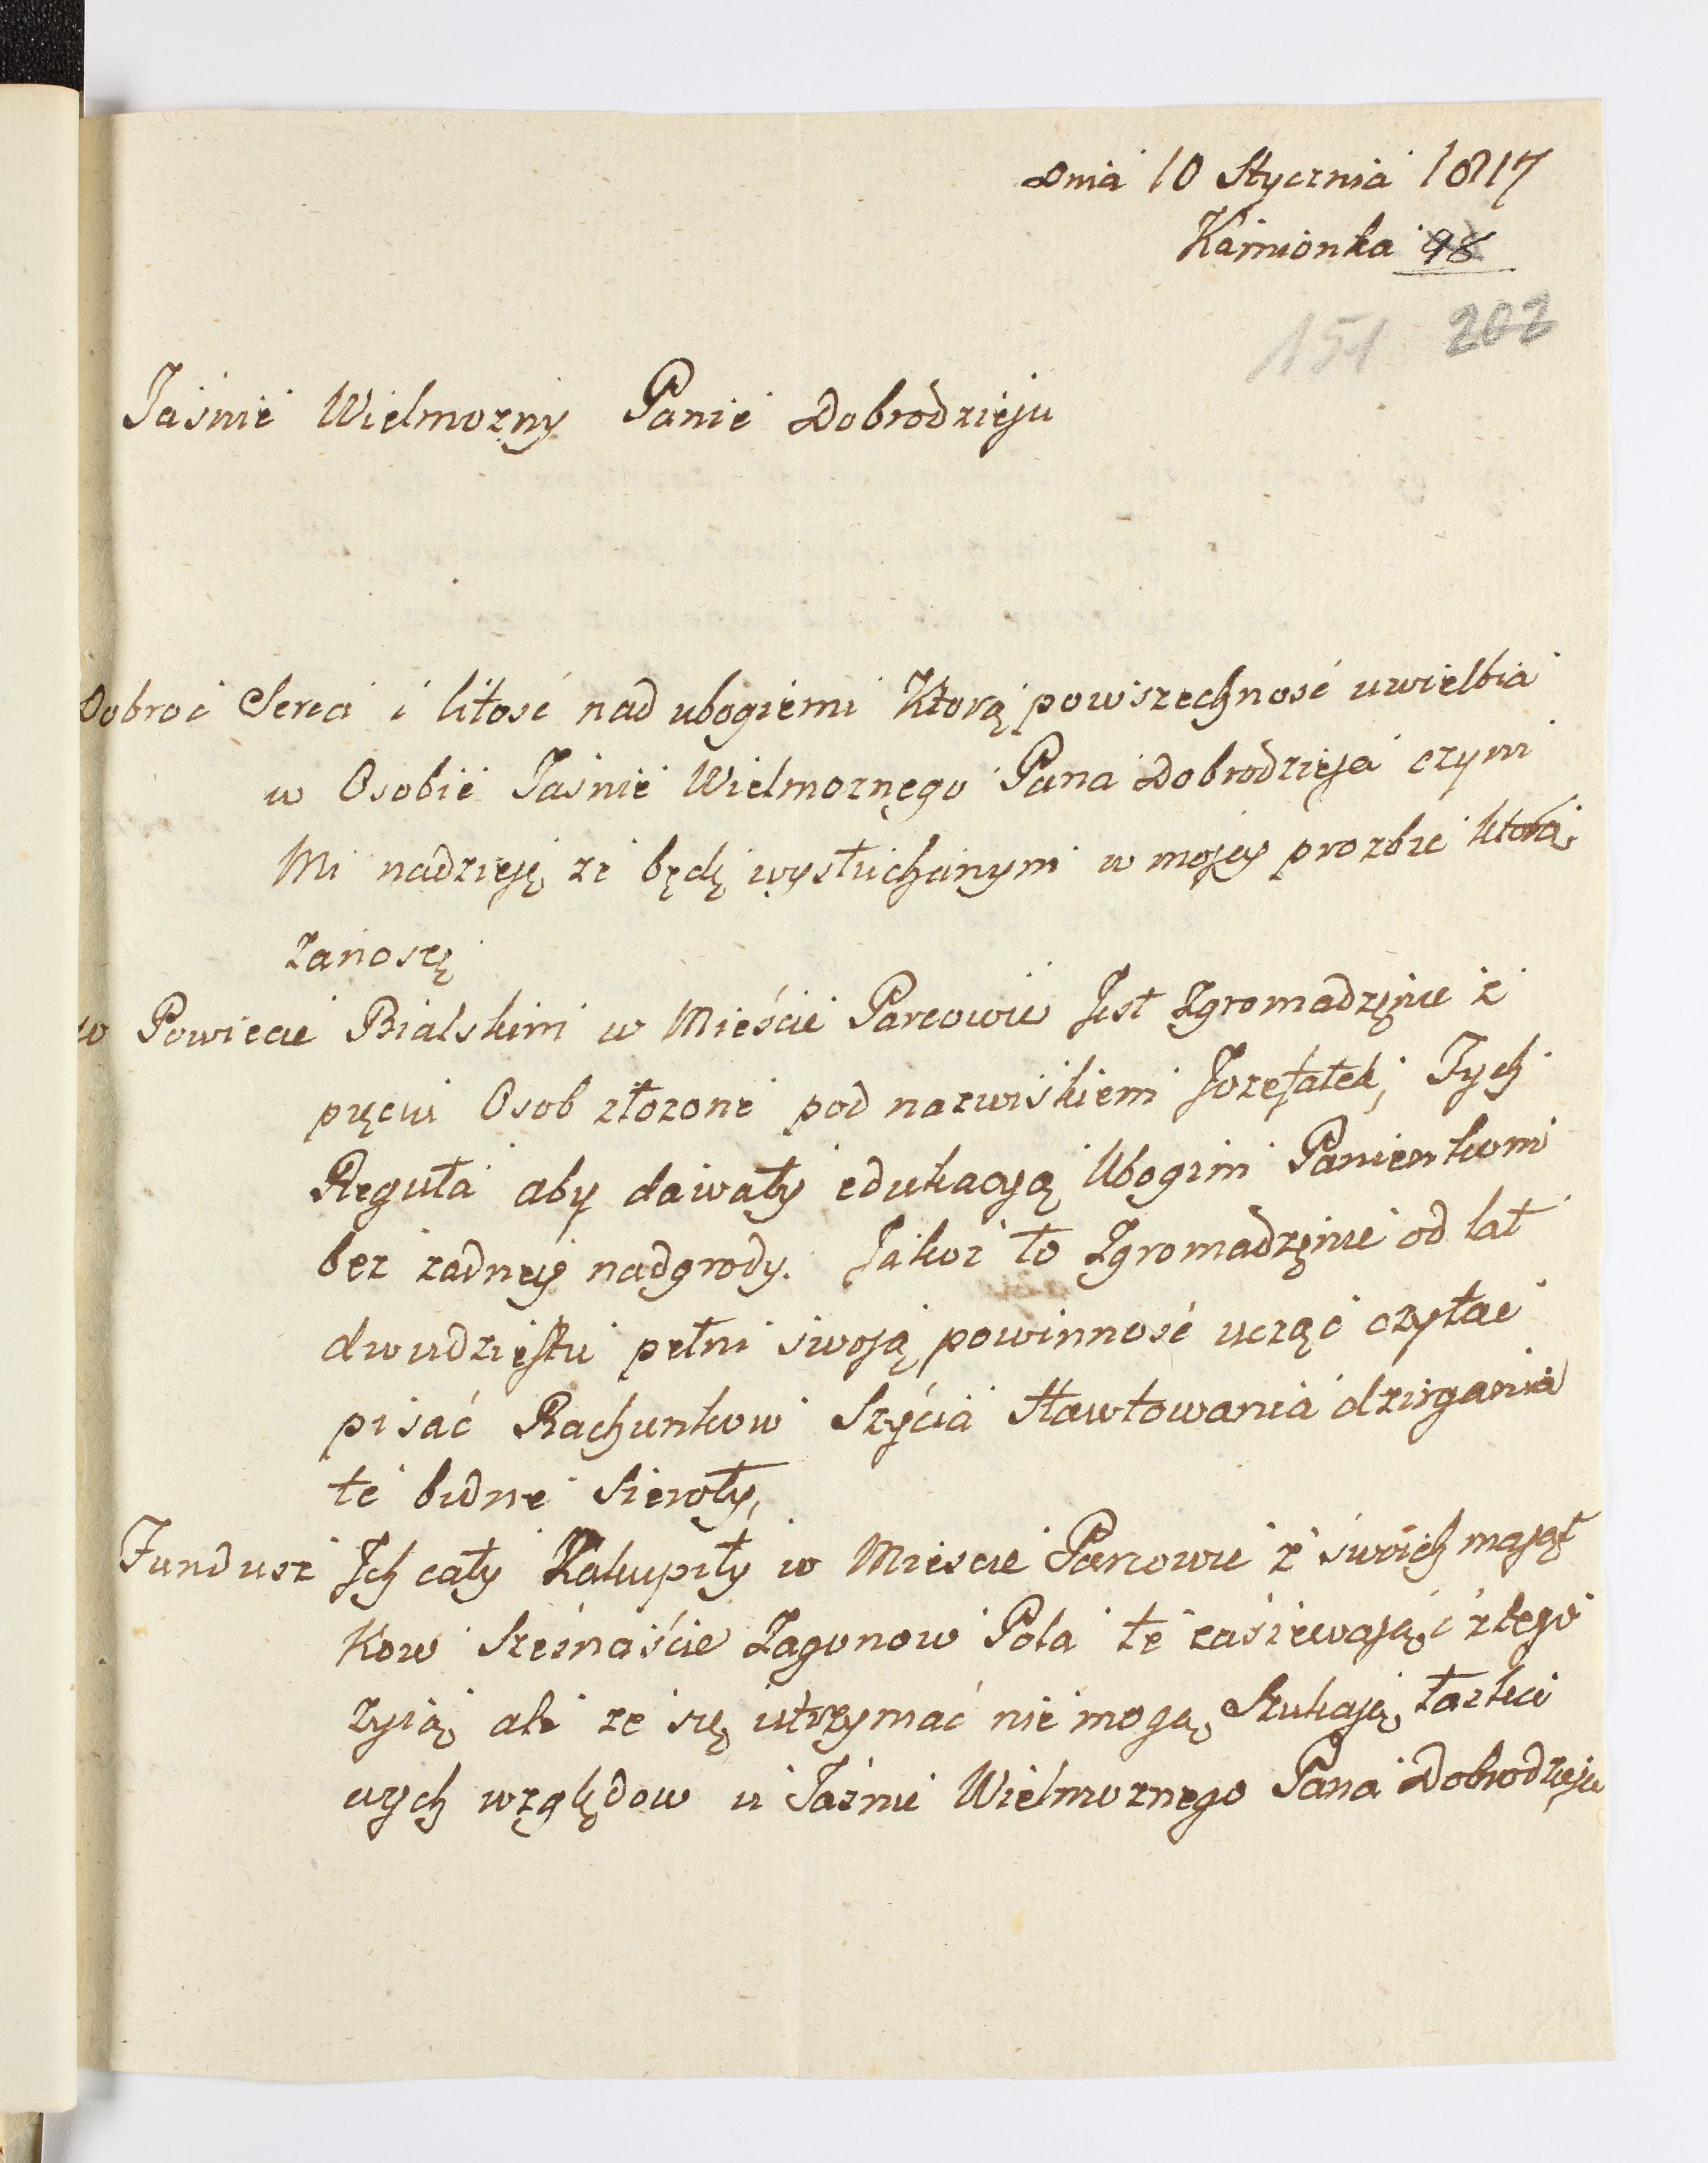 Dnia 10 Stycznia 1817
Kamionka 98
151 202
Jaśnie Wielmozny Panie Dobrodzieju
Dobroć Serca i litość nad ubogiemi Ktorą powszechność uwielbia
w Osobie Jaśnie Wielmoznego Pana Dobrodzieja czyni
Mi nadzieję ze będę wysłuchanym w mojey prozbie ktorą
zanoszę
w Powiecie Bialskim w Mieście Parcowie Jest Zgromadzęnie z
pięciu Osob złozone pod nazwiskiem Jozefatek, Tych
Reguła aby dawały edukacyą Ubogim Panienkom
bez zadney nadgrody. Jakoz to Zgromadzęnie od lat
dwudziestu pełni swoją powinność ucząc czytac
pisać Rachunkow Szycia Hawtowania dziergania
te biedne Sieroty,
Fundusz Ich cały Zakupiły w Miescie Parcowie z swoich mająt
Kow Szesnaście Zagonow Pola te zasiewają i z tego
zyią ale ze się utrzymać nie mogą, Szukają łaska
wych względow u Jaśnie Wielmoznego Pana Dobrodzieja